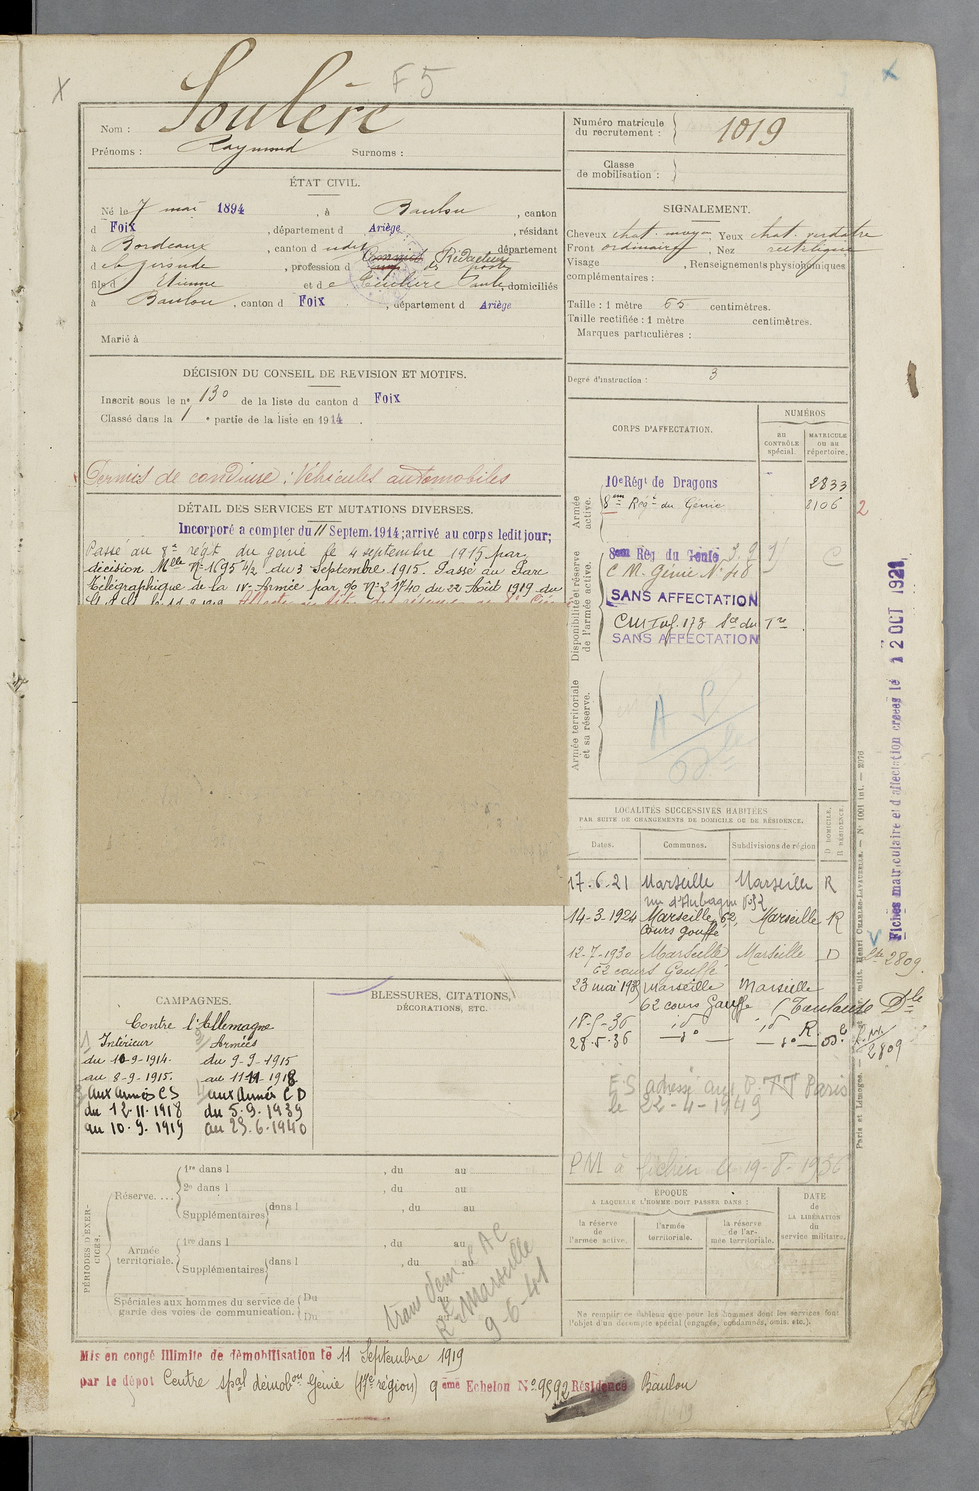 F5
X
x
Nom : Soulère
Prénoms : Raymond Surnoms :
Numéro matricule du recrutement : 1019
Classe de mobilisation :
ÉTAT CIVIL.
Né le 7 mai 1894, à Baulou, canton
d Foix, département d Ariège, résidant
à Bordeaux, canton d udit, département
d e la Gironde, profession d Rédacteur des postes
fils d Etienne et d e Paule, domiciliés
à Baulou, canton d Foix, département d Ariège
Marié à
SIGNALEMENT.
Cheveux chat. moyen, Yeux chat. verdâtre
Front ordinaire, Nez rectiligne
Visage , Renseignements physionomiques
complémentaires :
Taille : 1 mètre 65 centimètres.
Taille rectifiée : 1 mètre centimètres.
Marques particulières :
Degré d'instruction : 3
DÉCISION DU CONSEIL DE REVISION ET MOTIFS.
Inscrit sous le n° 130 de la liste du canton d Foix
Classé dans la 1 e partie de la liste en 1914.
Permis de conduire : Véhicules automobiles
DÉTAIL DES SERVICES ET MUTATIONS DIVERSES.
Incorporé a compter du 11 Septem. 1914; arrivé au corps ledit jour;
Passé au 8e régt du génie le 4 septembre 1915 par
décision Mlle N° 1695 4/2 du 3 Septembre 1915. Passé au Parc
Télégraphique de la IVe Armée par go N° 2 1740 du 22 Août 1919 du
CORPS D'AFFECTATION.
NUMÉROS
au CONTRÔLE spécial.
MATRICULE ou au répertoire.
Armée active.
10e Régt de Dragons 2833
8em Régt du Génie 8106 2
Disponibilité et réserve de l'armée active.
8em Rég du Génie
C M. Génie N° 48
SANS AFFECTATION
SANS AFFECTATION
Armée territoriale et sa réserve.
LOCALITÉS SUCCESSIVES HABITÉES
PAR SUITE DE CHANGEMENTS DE DOMICILE OU DE RÉSIDENCE.
Dates. Communes. Subdivisions de région
D DOMICILE, R RÉSIDENCE.
17-6-21 Marseille Marseille R
14-3-1924 Marseille 62, Marseille R
Cours Gouffé
12-7-1930 Marseille Marseille D
62 cours Gouffé
23 mai 1935 Marseille Marseille
62 cours Gouffé (Toulouse Dle
18-5-36 id id R.
28-5-36
2809
ES adressé aux P.TT Paris
le 22-4-1949
PM à
le 19-8-1936
Fiches matriculaire et d'affectation créées le 12 OCT 1921
2809
Paris et Limoges. — Henri CHARLES-LAVAUZELLE. — N° 1001 int. — 2976
CAMPAGNES.
Contre l'Allemagne
1/ Intérieur 2/ Armées
du 10-9-1914. du 9-9-1915
au 8-9-1915. au 11-11-1918
3 aux Armées CS 4 aux Armées CD
du 12-11-1918 du 5.9.1939
au 10-9-1919 au 25.6.1940
BLESSURES, CITATIONS,
DÉCORATIONS, ETC.
PÉRIODES D'EXERCICES.
Réserve.... 1re dans l , du au
2e dans l , du au
Supplémentaires dans l , du au
Armée territoriale. 1re dans l , du au
Supplémentaires dans l , du au
Spéciales aux hommes du service de garde des voies de communication. Du au
Du au
Marseille
9-6-41
ÉPOQUE
A LAQUELLE L'HOMME DOIT PASSER DANS :
la réserve de l'armée active.
l'armée territoriale.
la réserve de l'armée territoriale.
DATE de LA LIBÉRATION du service militaire.
Ne remplir ce tableau que pour les hommes dont les services font
l'objet d'un décompte spécial (engagés, condamnés, omis, etc.).
Mis en congé illimité de démobilisation le 11 Septembre 1919
par le dépôt Centre spal démobon Génie (17e région) 9 eme Echelon N° 9592 Résidence Baulou